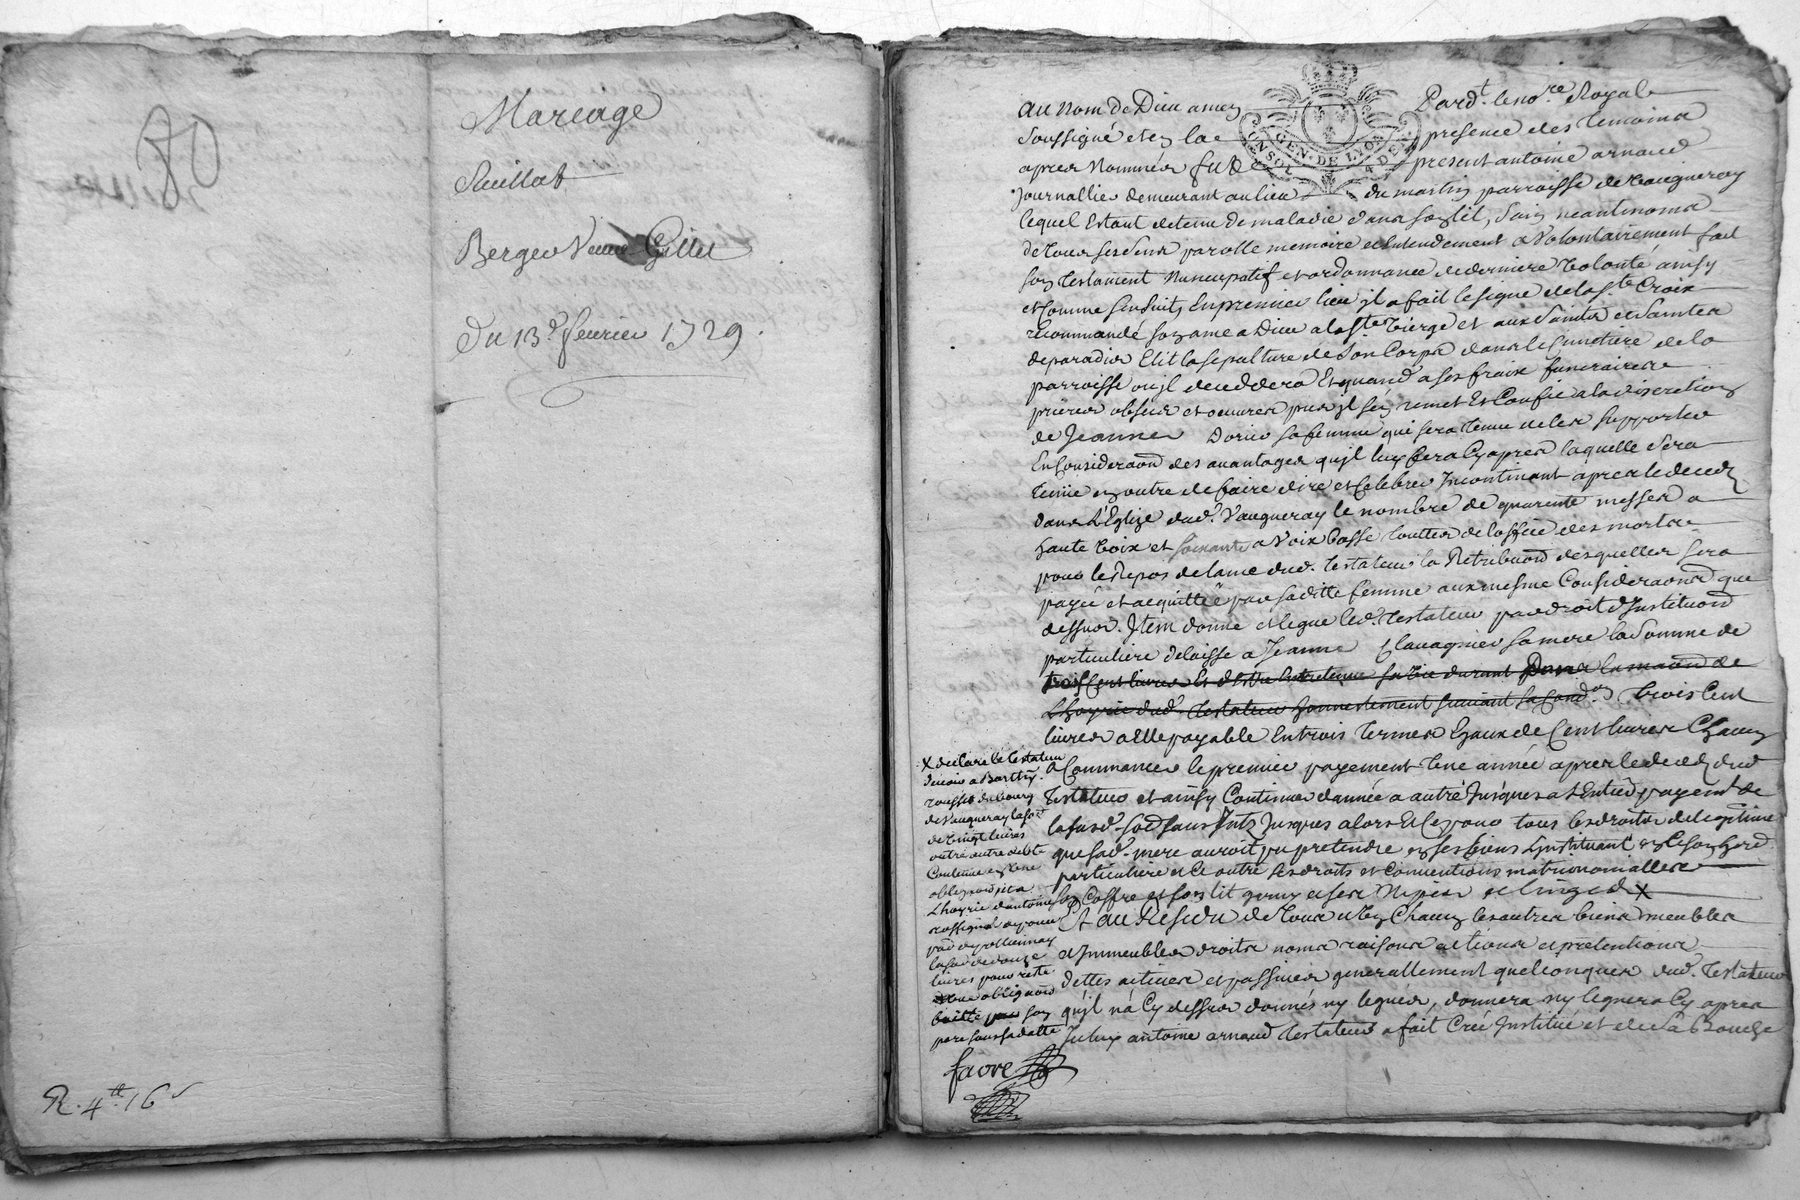 Mariage
Paillat
Berger Veuve Gillet
Du 13.e fevrier 1729.
R. 4tt. 16s
GEN. DE LYON
au Nom de Dieu amen Pard.t le no.re Royal
soussigné et en la presence des temoins
apres Nommés fut present antoine arnaud
journallier demeurant au lieu du martin parroisse de Vaugneray
lequel Estant detenu de maladie dans son lit, sain neantmoins
de tous ses sens parolle memoire et Entendement a Volontairement fait
son testament Nuncupatif et ordonnance de derniere Volonté ainsy
et comme sensuit, En premier lieu jl a fait le signe de la ste Croix
recommandé son ame a Dieu a la s.te Vierge et aux saints et saintes
de paradis Elit la sepulture de son Corps dans le simetiere de la
parroisse ou jl decedera Et quand a ses fraix funeraires
prieres obseques et oeuvres pies jl sen remet Et Confie a la discretion
de Jeanne sa femme qui sera tenue de les supporter
En Consideraon des avantages qujl luy fera Cy apres laquelle sera
tenüe en outre de faire dire et Celebrer Incontinant apres le deced
dans L'Eglize dud. Vaugneray le nombre de quarente messes a
haute Voix et soixante a Voix basse touttes de l'office des morts
pour le Repos de lame dud. testateur la Retribuon desquelles sera
payée et acquittée par saditte femme aux mesme Consideraons que
dessus. Item donne et legue led. testateur par droit d'Instituon
particuliere delaisse a Jeanne sa mere la somme de
trois Cent livres Et d'Estre Entretenue sa vie durant Dans la maison de
L'hoyrie dud. testateur honnestement suivant sa Condon trois Cent
livres a Elle payable En trois termes Egaux de Cent livres Chacun
a Commancer le premier payement Une année apres le deced dud
testateur et ainsy Continuer d'année a autre Jusques a l'Entier payem.t de
lasusd. so.e sans Jusques alors Et ce pour tous les droits de legitime
que sad. mere auroit pu pretendre en ses biens L'jnstituant en Ce son herd
particuliere et Ce outre ses droits et Conventions matrimonialles
son Coffre et son lit garny et ses Nipes et linges X
Et au Residu de tous et Un Chacun les autres biens meubles
et Immeubles droits noms raisons actions et pretentions
dettes actives et passives generallement quelconques dud. testateur
qujl n'a Cy dessus donnés ny legués, donnera ny leguera Cy apres
Iceluy antoine arnaud testateur a fait Créé Institué et de sa Bouche
X declare le testateur
devoir a Barth.y
rousset du bourg
de Vaugneray la so.e
de Vingt livres
outre autre debte
Contenue en Une
obligaon
L'hoyrie d'antoine
par
la so.e de douze
livres pour reste
d'Une obligaon
pere
favre